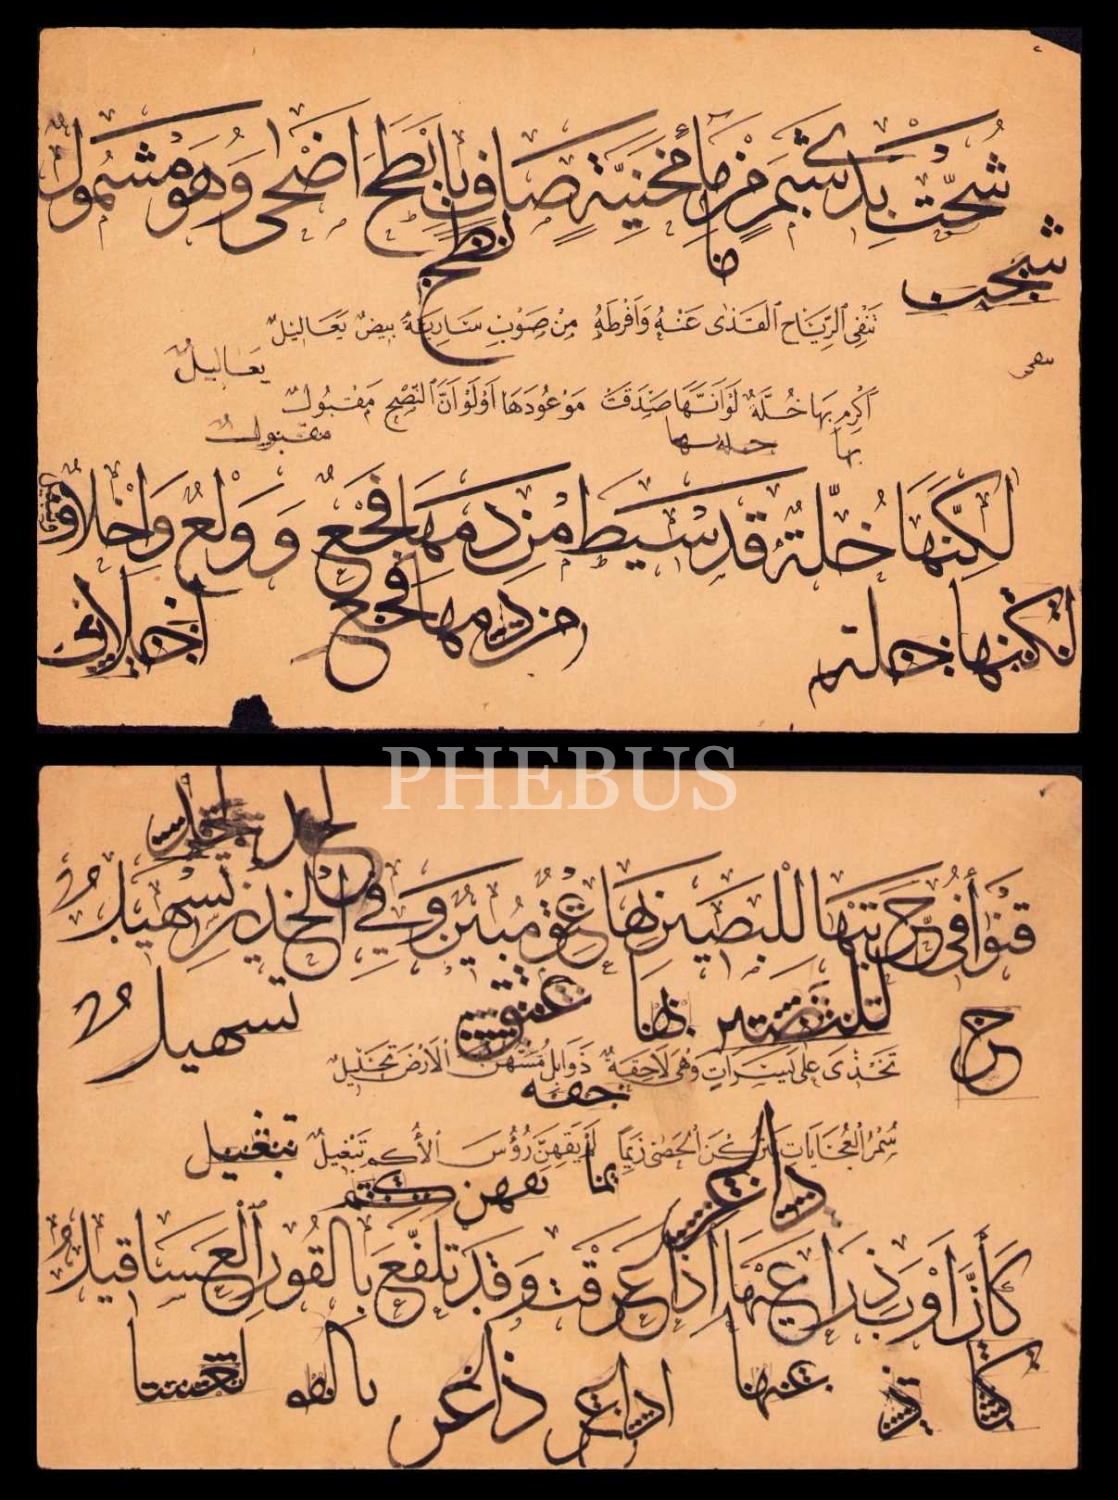 شُجَّتْ بِذِي شَبَمٍ مِنْ مَاءِ مَحْنِيَةٍ صَافٍ بِأَبْطَحَ أَضْحَى وَهُوَ مَشْمُولُ
شجت ما بطح
تَنْفِي الرِّيَاحُ القَذَى عَنْهُ وَأَفْرَطَهُ مِنْ صَوْبِ سَارِيَةٍ بِيضٌ يَعَالِيلُ
يعاليل
أَكْرِمْ بِهَا خُلَّةً لَوْ أَنَّهَا صَدَقَتْ مَوْعُودَهَا أَوْ لَوْ أَنَّ النُّصْحَ مَقْبُولُ
بها مقبول
لَكِنَّهَا خُلَّةٌ قَدْ سِيطَ مِنْ دَمِهَا فَجْعٌ وَوَلْعٌ وَإِخْلَافٌ وَتَبْدِيلُ
لكنها خلة من دمها فجع اخلاف
PHEBUS
قَنْوَاءُ فِي حُرَّتَيْهَا لِلْبَصِيرِ بِهَا عِتْقٌ مُبِينٌ وَفِي الخَدَّيْنِ تَسْهِيلُ
حر للبصير بها عتق تسهيل
تَخْدِي عَلَى يَسَرَاتٍ وَهْيَ لَاحِقَةٌ ذَوَابِلٌ مَسُّهُنَّ الأَرْضَ تَحْلِيلُ
حقه
سُمْرُ العُجَايَاتِ يَتْرُكْنَ الحَصَى زِيَمًا لَمْ يَقِهِنَّ رُؤُسَ الأُكْمِ تَنْعِيلُ
يما يقهن تنعيل
كَأَنَّ أَوْبَ ذِرَاعَيْهَا إِذَا عَرِقَتْ وَقَدْ تَلَفَّعَ بِالقُورِ العَسَاقِيلُ
كا عيها اذا عر ذا عر بالقو لعسا